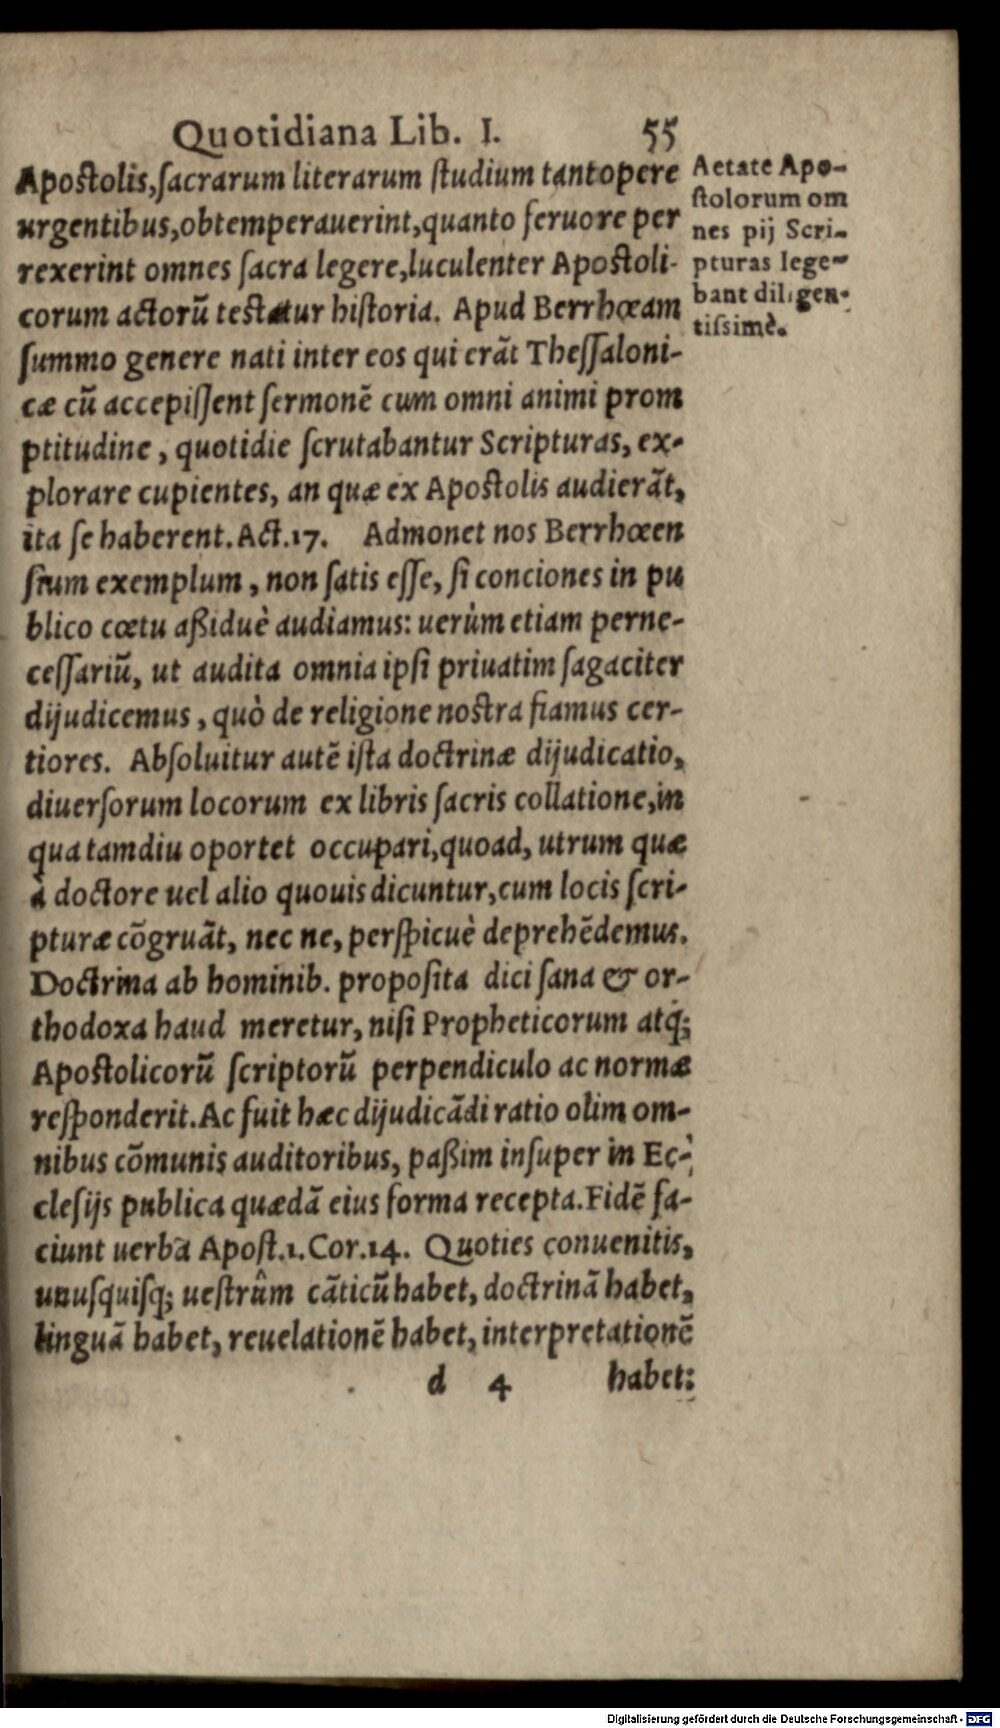 Quotidiana Lib. I. 55
Apostolis, sacrarum literarum studium tantopere
urgentibus, obtemperauerint, quanto feruore per
rexerint omnes sacra legere, luculenter Apostoli-
corum actorũ testatur historia. Apud Berrhœam
summo genere nati inter eos qui erãt Thessaloni-
cæ cũ accepissent sermonẽ cum omni animi prom
ptitudine, quotidie scrutabantur Scripturas, ex-
plorare cupientes, an quæ ex Apostolis audierãt,
ita se haberent. Act. 17. Admonet nos Berrhœen
sium exemplum, non satis esse, si conciones in pu
blico cœtu aßiduè audiamus: uerùm etiam perne-
cessariũ, ut audita omnia ipsi priuatim sagaciter
dijudicemus, quò de religione nostra fiamus cer-
tiores. Absoluitur autẽ ista doctrinæ dijudicatio,
diuersorum locorum ex libris sacris collatione, in
qua tamdiu oportet occupari, quoad, utrum quæ
à doctore uel alio quouis dicuntur, cum locis scri-
pturæ cõgruãt, nec ne, perspicuè deprehẽdemus.
Doctrina ab hominib. proposita dici sana & or-
thodoxa haud meretur, nisi Propheticorum atq;
Apostolicorũ scriptorũ perpendiculo ac normæ
responderit. Ac fuit hæc dijudicãdi ratio olim om-
nibus cõmunis auditoribus, paßim insuper in Ec-
clesijs publica quædã eius forma recepta. Fidẽ fa-
ciunt uerba Apost. 1. Cor. 14. Quoties conuenitis,
unusquisq; uestrûm cãticũ habet, doctrinã habet,
linguã habet, reuelationẽ habet, interpretationẽ
d 4 habet:
Aetate Apo-
stolorum om
nes pij Scri-
pturas lege-
bant diligen-
tissimè.
Digitalisierung gefördert durch die Deutsche Forschungsgemeinschaft - DFG